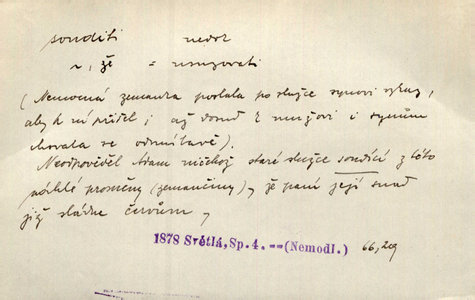 souditi nedok
~, že = usuzovati
(Nemocná zemanka poslala po služce synovi vzkaz,
aby k ní přišel i až dosud k mužovi i synům
chovala se odmítavě).
Neodpověděl Adam ničehož staré služce soudící z této
náhlé proměny (zemančiny), že paní její snad
již sládne červům,
1878 Světlá, Sp. 4. -- (Nemodl.) 66,